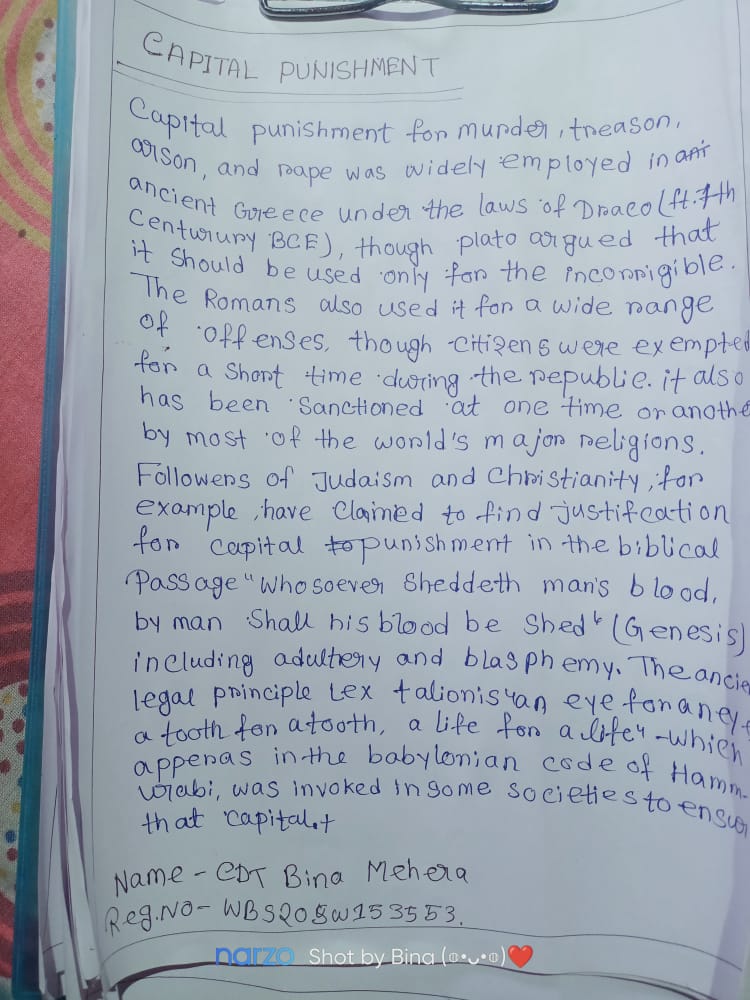 CAPITAL PUNISHMENT
Capital punishment for murder, treason,
arson, and rape was widely employed in
ancient Greece under the laws of Draco (ft. 7th
Centurury BCE), though plato argued that
it should be used only for the incorrigible.
The Romans also used it for a wide range
of offenses, though citizens were exempted
for a short time during the republic. it also
has been sanctioned at one time or anothe
by most of the world's major religions.
Followers of Judaism and Christianity, for
example, have claimed to find justifcation
for capital to punishment in the biblical
Passage "Whosoever sheddeth man's blood,
by man shall his blood be shed" (Genesis)
including adultery and blasphemy. The ancie
legal principle Lex talionis "an eye for an ey
a tooth for a tooth, a life for a life" - which
apperas in the babylonian code of Hamm-
urabi, was invoked in some societies to ensur
that capital.t
Name - CDT Bina Mehera
Reg.NO - WBS20SW153553.
narzo Shot by Bina (๏•ᴗ•๏)❤️